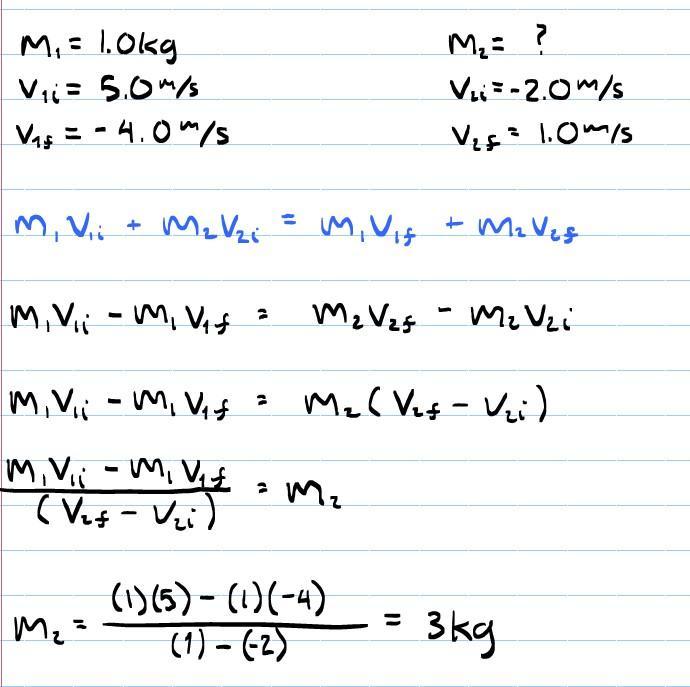 m₁ = 1.0kg m₂ = ?
v₁ᵢ = 5.0 m/s v₂ᵢ = -2.0 m/s
v₁f = -4.0 m/s v₂f = 1.0 m/s
m₁v₁ᵢ + m₂v₂ᵢ = m₁v₁f + m₂v₂f
m₁v₁ᵢ - m₁v₁f = m₂v₂f - m₂v₂ᵢ
m₁v₁ᵢ - m₁v₁f = m₂(v₂f - v₂ᵢ)
m₁v₁ᵢ - m₁v₁f
(v₂f - v₂ᵢ) = m₂
(1)(5) - (1)(-4)
m₂ = = 3kg
(1) - (-2)